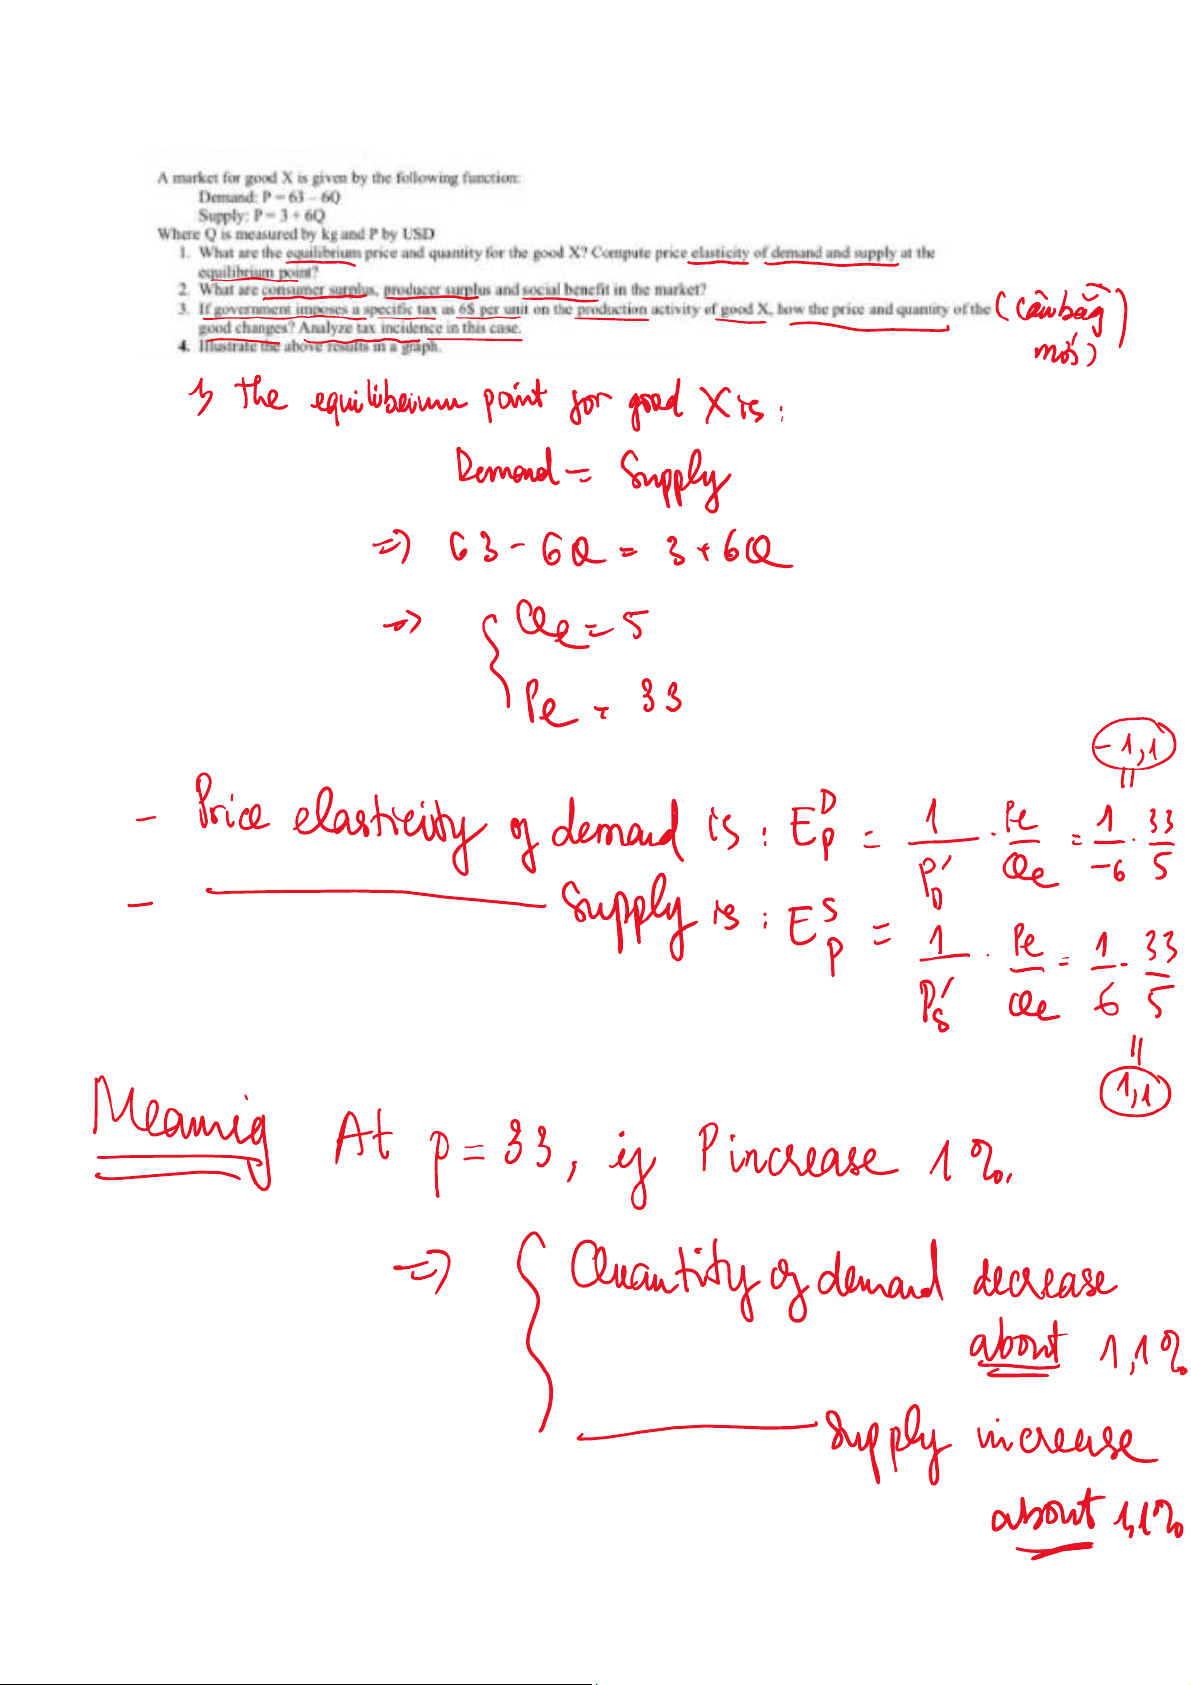 A market for good X is given by the following function:
Demand: P = 63 – 6Q
Supply: P = 3 + 6Q
Where Q is measured by kg and P by USD
1. What are the equilibrium price and quantity for the good X? Compute price elasticity of demand and supply at the
equilibrium point?
2. What are consumer surplus, producer surplus and social benefit in the market?
3. If government imposes a specific tax as 6$ per unit on the production activity of good X, how the price and quantity of the (cân bằg
good changes? Analyze tax incidence in this case. mới)
4. Illustrate the above results in a graph.
1, The equilibrium point for good X is:
Demand = Supply
=> 63 - 6Q = 3 + 6Q
=> { Qe = 5
Pe = 33
- Price elasticity of demand is: E_P^D = 1/P'_D . Pe/Qe = 1/-6 . 33/5 = -1,1
- ——— Supply is: E_P^S = 1/P'_S . Pe/Qe = 1/6 . 33/5 = 1,1
Meaning At p = 33, if P increase 1%.
=> { Quantity of demand decrease
about 1,1%
——— Supply increase
about 1,1%